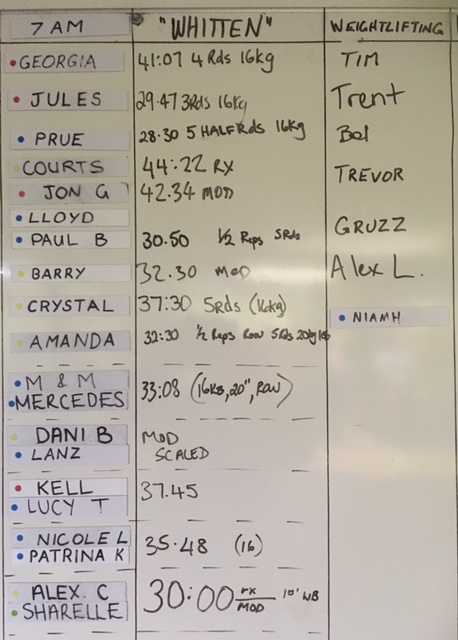 7 AM "WHITTEN" WEIGHTLIFTING
GEORGIA 41:07 4 Rds 16kg TIM
JULES 29.47 3Rds 16kg Trent
PRUE 28.30 5 HALF Rds 16kg Bel
COURTS 44:22 RX
JON G 42.34 MOD TREVOR
LLOYD
PAUL B 30.50 1/2 Reps 5Rds GRUZZ
BARRY 32.30 MOD Alex L.
CRYSTAL 37:30 5Rds (16kg) NIAMH
AMANDA 32:30 1/2 Reps Row 5Rds 20kg
M & M
MERCEDES 33:08 (16KB, 20", ROW)
DANI B MOD
LANZ SCALED
KELL 37.45
LUCY T
NICOLE L 35.48 (16)
PATRINA K
ALEX. C 30:00 RX 10' WB
SHARELLE MOD